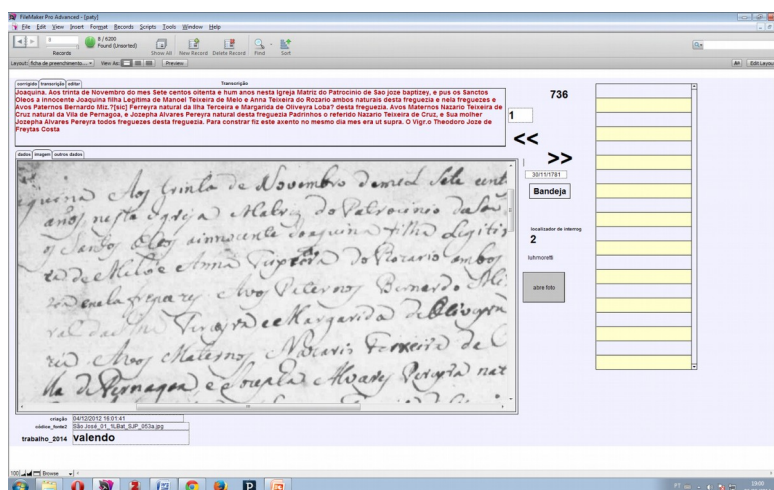 FileMaker Pro Advanced - [paty]
File Edit View Insert Format Records Scripts Tools Window Help
8 / 6200
Found (Unsorted)
Records
Show All New Record Delete Record Find Sort
Layout: ficha de preenchimento... View As: Preview
Edit Layout
corrigida transcrição editor
Transcrição
Joaquina. Aos trinta de Novembro do mes Sete centos oitenta e hum anos nesta Igreja Matriz do Patrocinio de Sao joze baptizey, e pus os Sanctos
Oleos a innocente Joaquina filha Legitima de Manoel Teixeira de Melo e Anna Teixeira do Rozario ambos naturais desta freguezia e nela freguezes e
Avos Paternos Bernardo Miz.?[sic] Ferreyra natural da Ilha Terceira e Margarida de Oliveyra Loba? desta freguezia. Avos Maternos Nazario Teixeira de
Cruz natural da Vila de Pernagoa, e Jozepha Alvares Pereyra natural desta freguezia Padrinhos o referido Nazario Teixeira de Cruz, e Sua molher
Jozepha Alvares Pereyra todos freguezes desta freguezia. Para constrar fiz este axento no mesmo dia mes era ut supra. O Vigr.o Theodoro Joze de
Freytas Costa
736
1
<<
>>
30/11/1781
Bandeja
localizador de interrog
2
luhmoretti
abre foto
dados imagem outros dados
quina Aos trinta de Novembro de mil Sete cent
annos nesta Igreja Matriz do Patrocinio de Sao
os Santos Oleos a innocente Joaquina filha Legitim
ra de Mello e Anna Teixeira do Rozario ambos
Avos Paternos Bernardo
Terceyra e Margarida de Oliveyra
Avos Maternos Nazario Teixeira de C
lla de Pernagoa, e Jozepha Alvares Pereyra nat
criação 04/12/2012 16:01:41
códice_fonte2 São José_01_1LBat_SJP_053a.jpg
trabalho_2014 valendo
100 Browse
PT
19:00